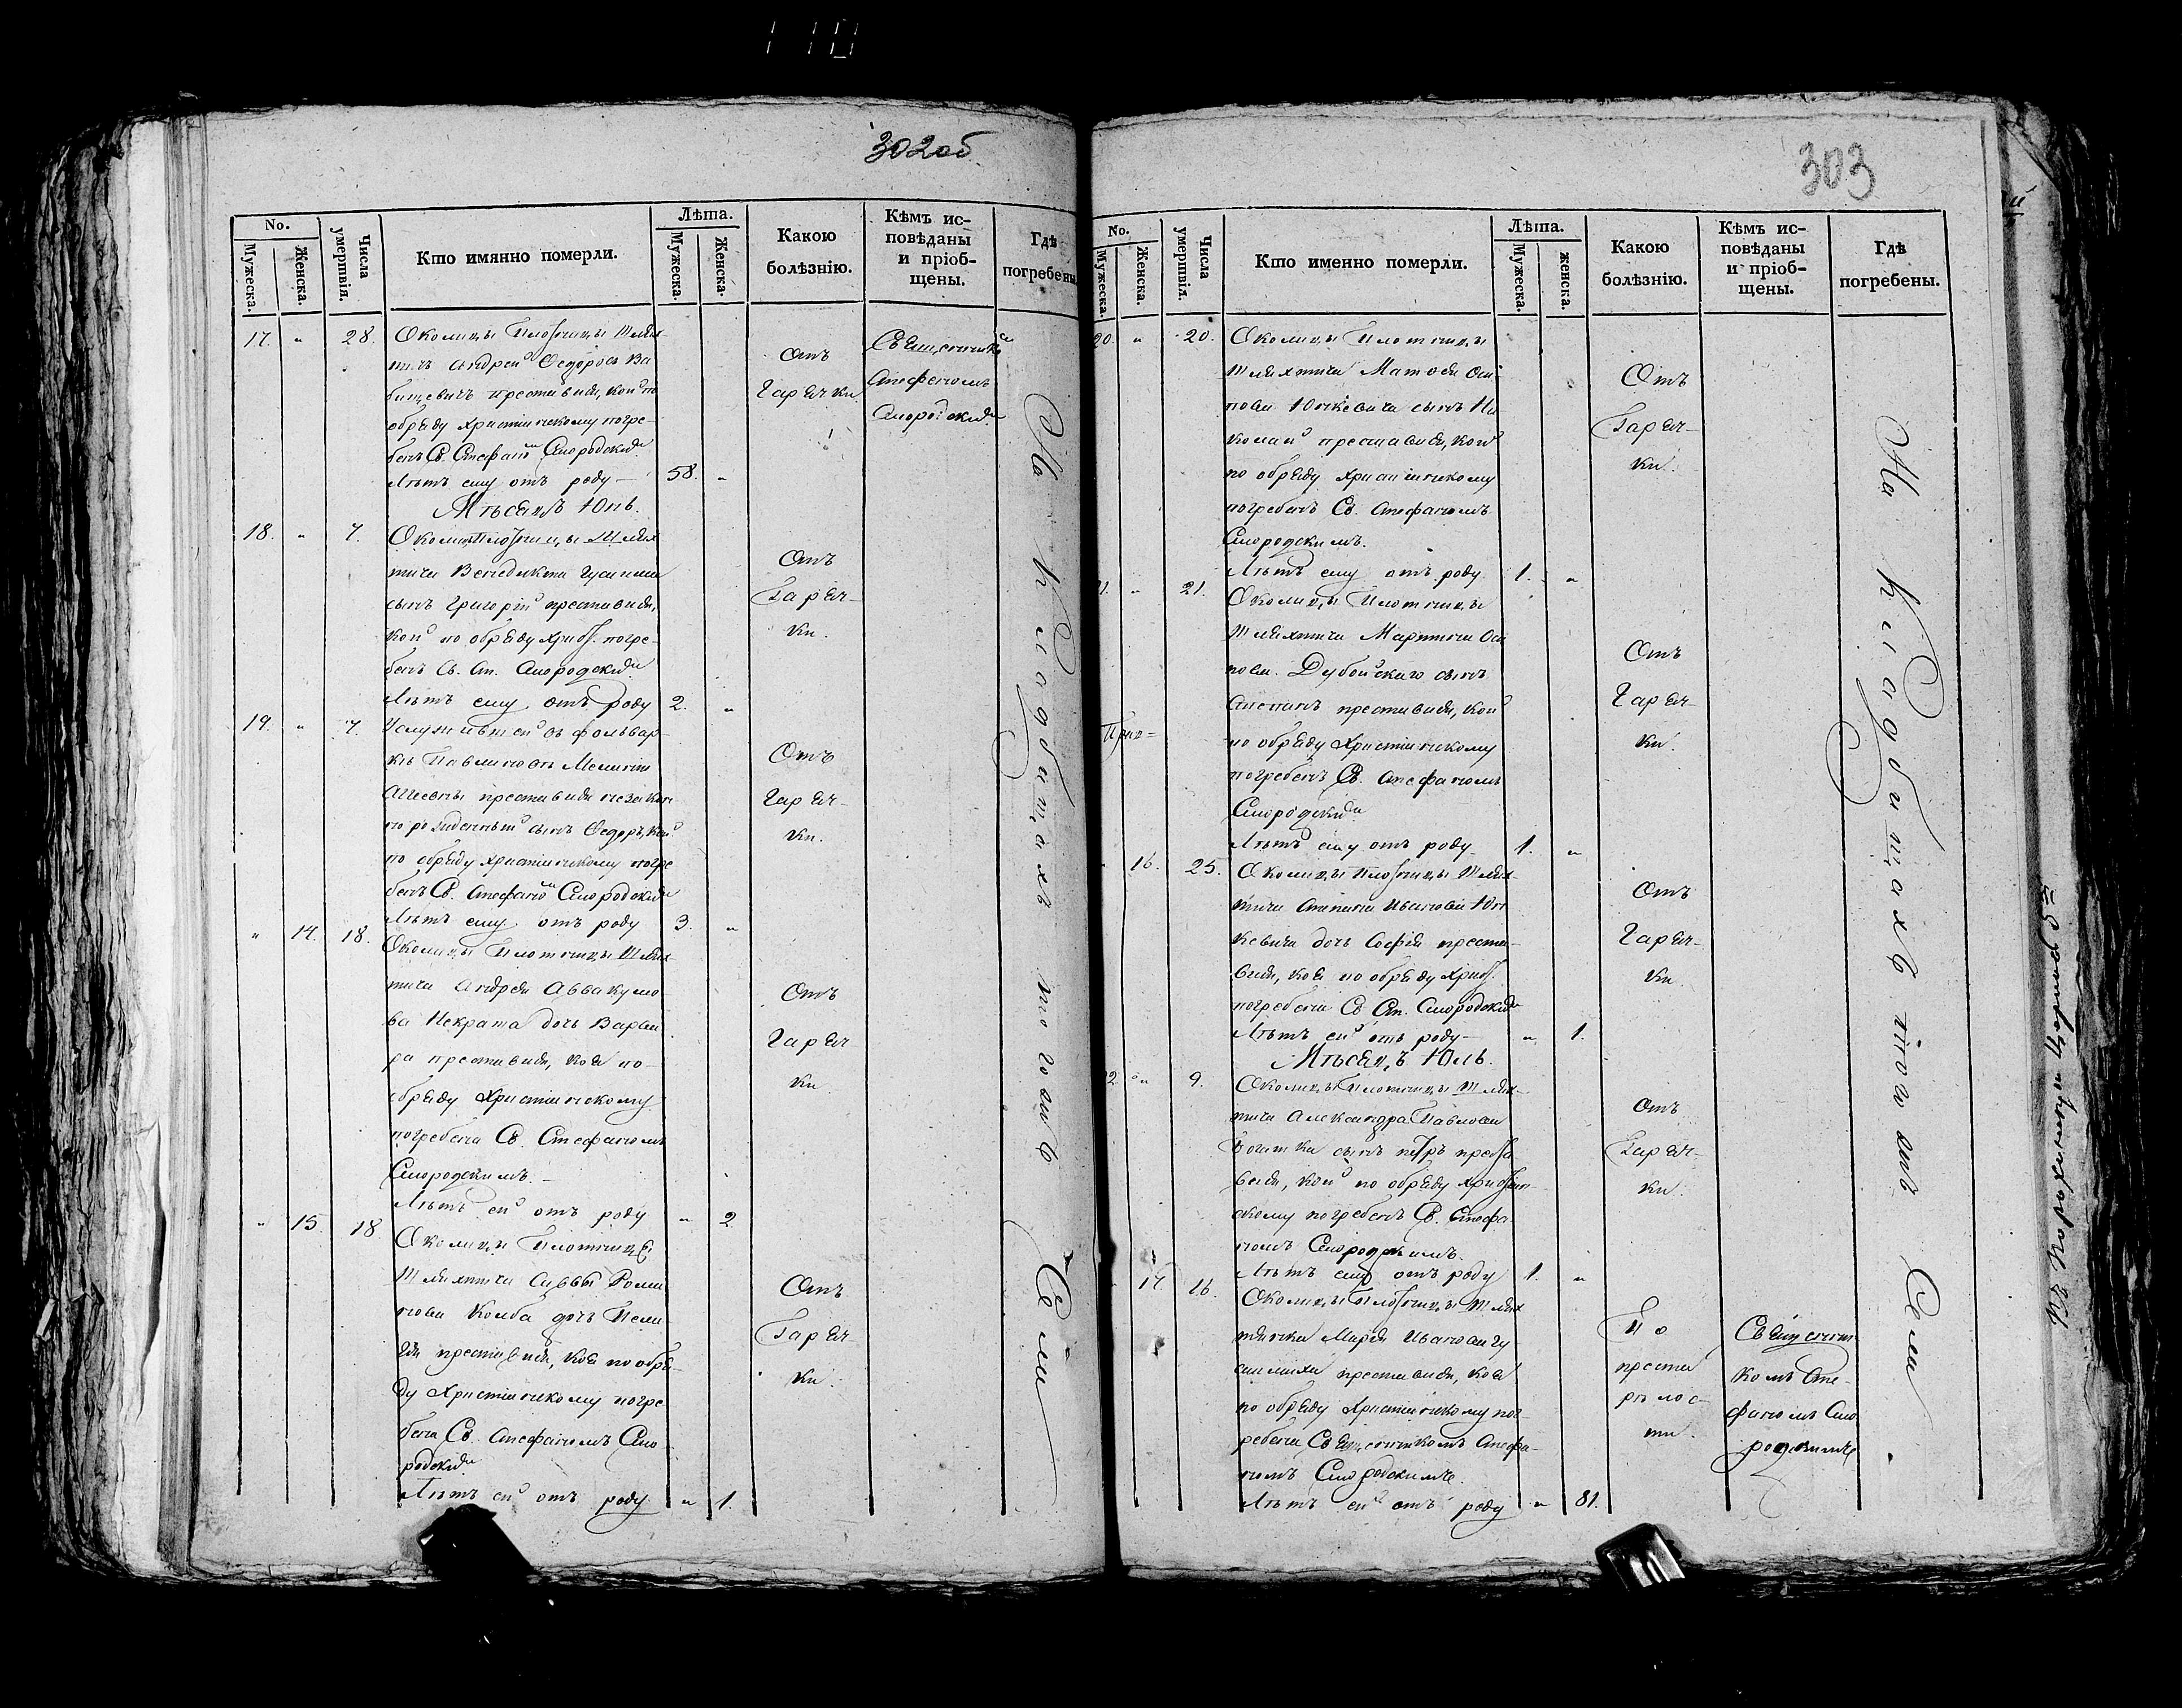 302об.
No.
Мужеска.
Женска.
Числа умершвія.
Кто имянно померли.
Лѣта.
Мужеска.
Женска.
Какою болѣзнію.
Кѣмъ исповѣданы и пріобщены.
Гдѣ погребены
17. „ 28. Околицы Плотницы Шлях
тичъ Андрей Ѳедоровъ Ба
бицевичъ преставися, кой по
обряду христіанскому погре-
бенъ Св. Стефаномъ Смородскимъ
Лѣтъ ему отъ роду — 58. „
Отъ
Гарячки
Священникомъ
Стефаномъ
Смородскимъ
Мѣсяцъ Юнь.
18. „ 7. Околицы Плотницы Шлях
тича Венедикта
сынъ Григорій преставися,
кой по обряду христ. погре-
бенъ Св. Ст. Смородскимъ
Лѣтъ ему отъ роду 2. „
Отъ
Гаряч-
ки.
19. „ 7. въ фольвар
кѣ
преставися незакон
норожденный сынъ Ѳедоръ, кой
по обряду христіанскому погре
бенъ Св. Стефаномъ Смородскимъ
Лѣтъ ему отъ роду 3. „
Отъ
Гаряч-
ки.
„ 14. 18. Околицы Плотницы Шлях-
тича Андрея Аввакумо
ва Некрата дочь Варва
ра преставися, коя по-
обряду Христіанскому
погребена Св. Стефаномъ
Смородскимъ. –
Лѣтъ ей отъ роду „ 2
Отъ
Гаряч
ки.
„ 15. 18. Околицы Плотницы
Шляхтича Саввы Рома
нова Колба дочь Пела
гія преставися, коя по обря-
ду Христіанскому погре
бена Св. Стефаномъ Смо
родскимъ
Лѣтъ ей отъ роду „ 1.
Отъ
Гаряч
ки.
На кладбищахъ того жъ Села
303
No.
Мужеска.
Женска.
Числа умершвія.
Кто именно померли.
Лѣта.
Мужеска.
женска.
Какою болѣзнію.
Кѣмъ исповѣданы и пріобщены.
Гдѣ погребены.
20. „ 20. Околицы Плотницы
Шляхтича Матвѣя Оси-
пова Юнкевича сынъ Ни
колай преставися, кой
по обряду христіанскому
погребенъ Св. Стефаномъ
Смородскимъ.
Лѣтъ ему отъ роду 1. „
Отъ
Гаряч-
ки.
21. „ 21. Околицы Плотницы
Шляхтича Мартина Оси
пова Дубойскаго сынъ
Степанъ преставися, кой
по обряду Христіанскому
погребенъ Св. Стефаномъ
Смородскимъ
Лѣтъ ему отъ роду 1. „
Отъ
Гаряч-
ки.
16. 25. Околицы Плотницы Шлях-
тича Степана Иванова Юн
кевича дочь Софія преста-
вися, коя по обряду христ.
погребена Св Ст. Смородскимъ
Лѣтъ ей отъ роду — „ 1.
Отъ
Гаряч-
ки
Мѣсяцъ Юль.
22. „ 9. Околицы Плотницы Шлях-
тича Александра Павлова
сынъ Петръ преста
вися, кой по обряду христіан-
скому погребенъ Св. Стефа
номъ Смородскимъ.
Лѣтъ ему отъ роду 1. „
Отъ
Гаряч-
ки.
17. 16. Околицы Плотницы Шлях
тянка Марія Иванова
преставися, коя
по обряду Христіанскому пог-
ребена Священникомъ Стефа-
номъ Смородскимъ.
Лѣтъ ей отъ роду „ 81.
По
преста
рѣлос-
ти.
Священни
комъ Сте-
фаномъ Смо
родскимъ
На кладбищахъ того жъ Села